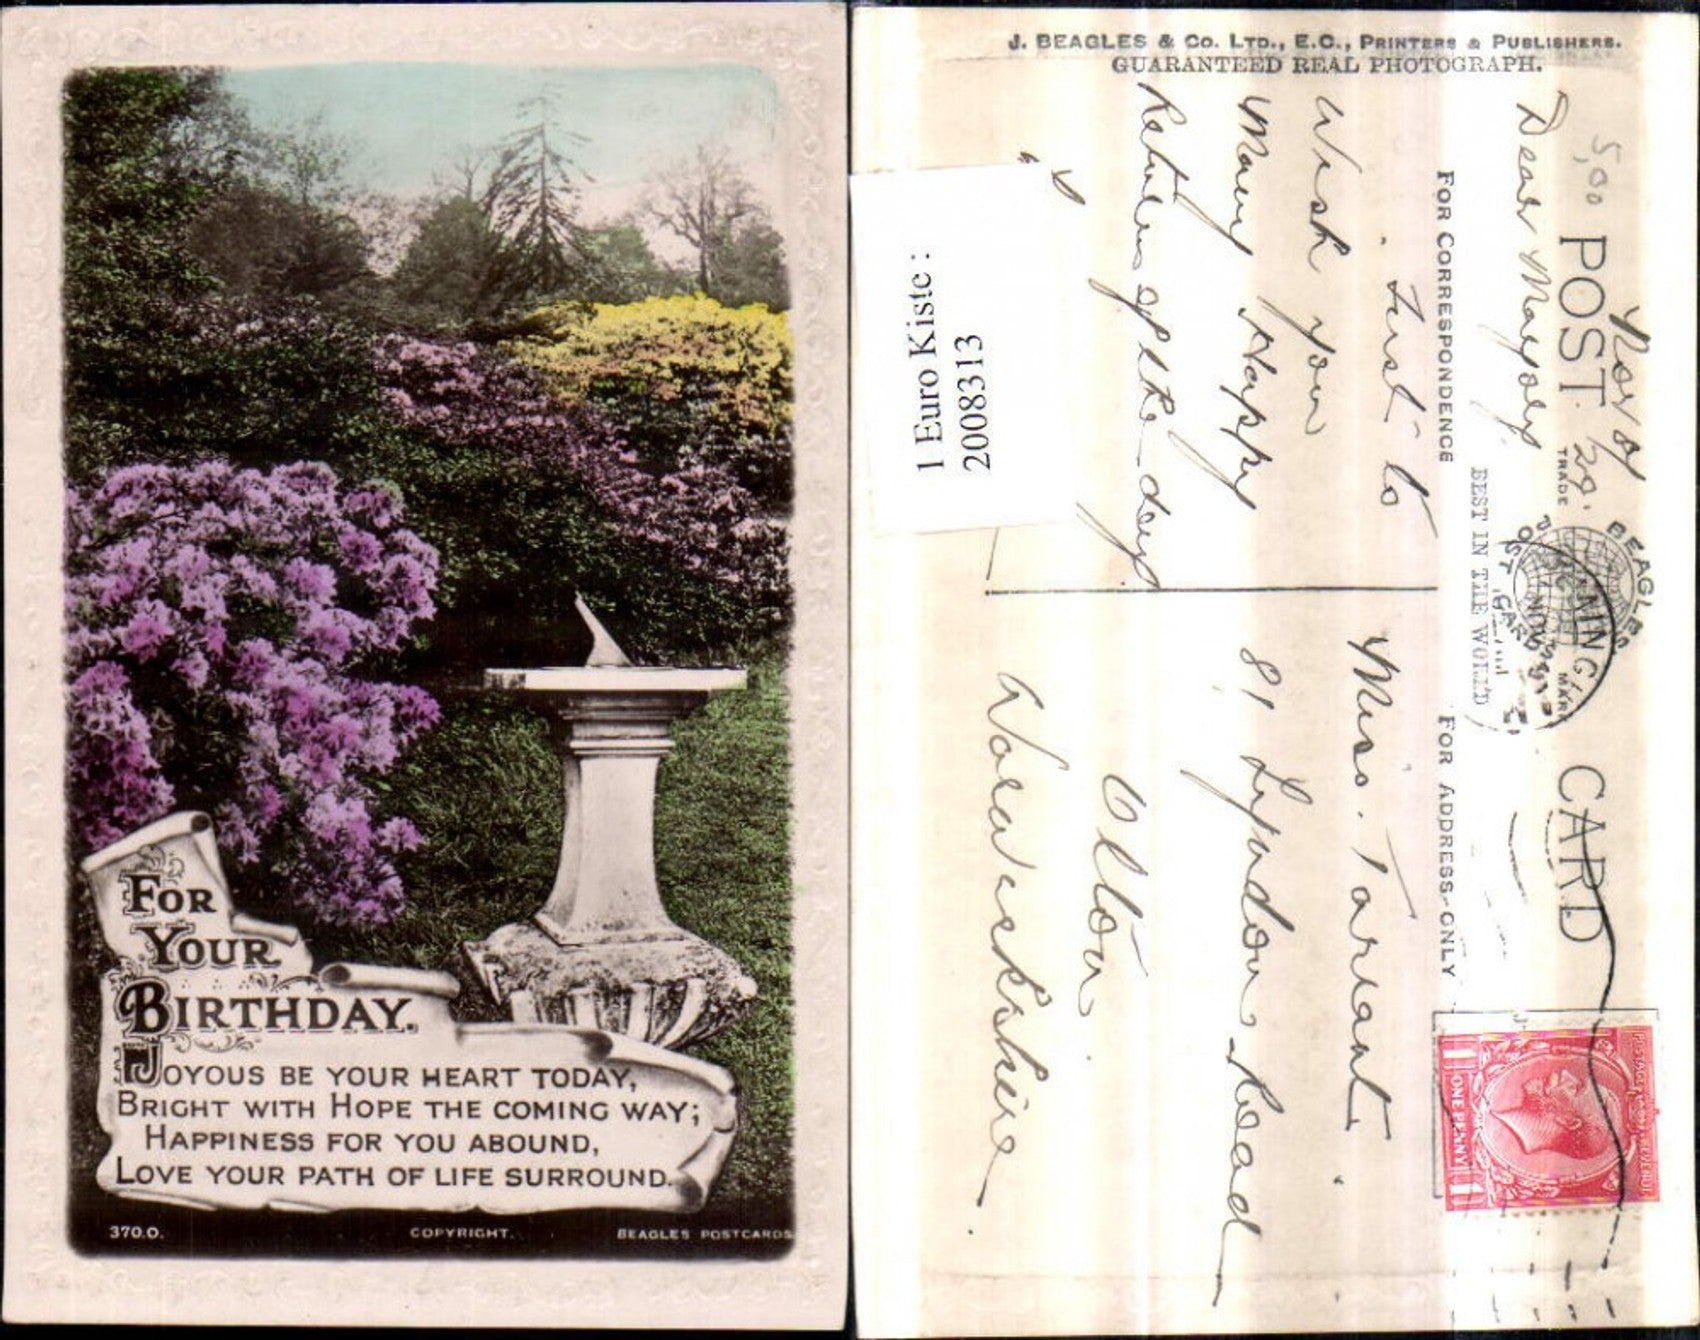 FOR
YOUR
BIRTHDAY.
JOYOUS BE YOUR HEART TODAY,
BRIGHT WITH HOPE THE COMING WAY;
HAPPINESS FOR YOU ABOUND,
LOVE YOUR PATH OF LIFE SURROUND.
370.O.
COPYRIGHT.
BEAGLES POSTCARDS
J. BEAGLES & CO. LTD., E.C., PRINTERS & PUBLISHERS.
GUARANTEED REAL PHOTOGRAPH.
5,00
29.
POST CARD
BEAGLES
POST CARDS
TRADE MARK
BEST IN THE WORLD
FOR CORRESPONDENCE
FOR ADDRESS ONLY
Dear
Just to
Wish you
Many Happy
Returns of the day
Miss. Tarrant
81 Lyndon Road
Olton
Warwickshire.
POSTAGE REVENUE
ONE PENNY
1 1
NOV
1 Euro Kiste :
20083313